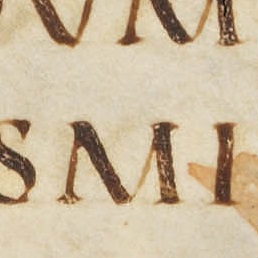 VM
SMI